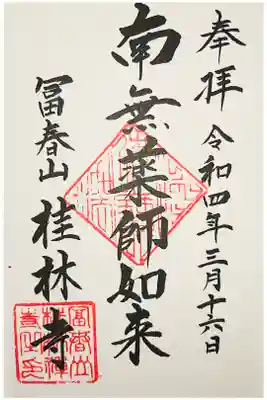 奉拝 令和四年三月十六日
南無薬師如来
冨春山 桂林寺